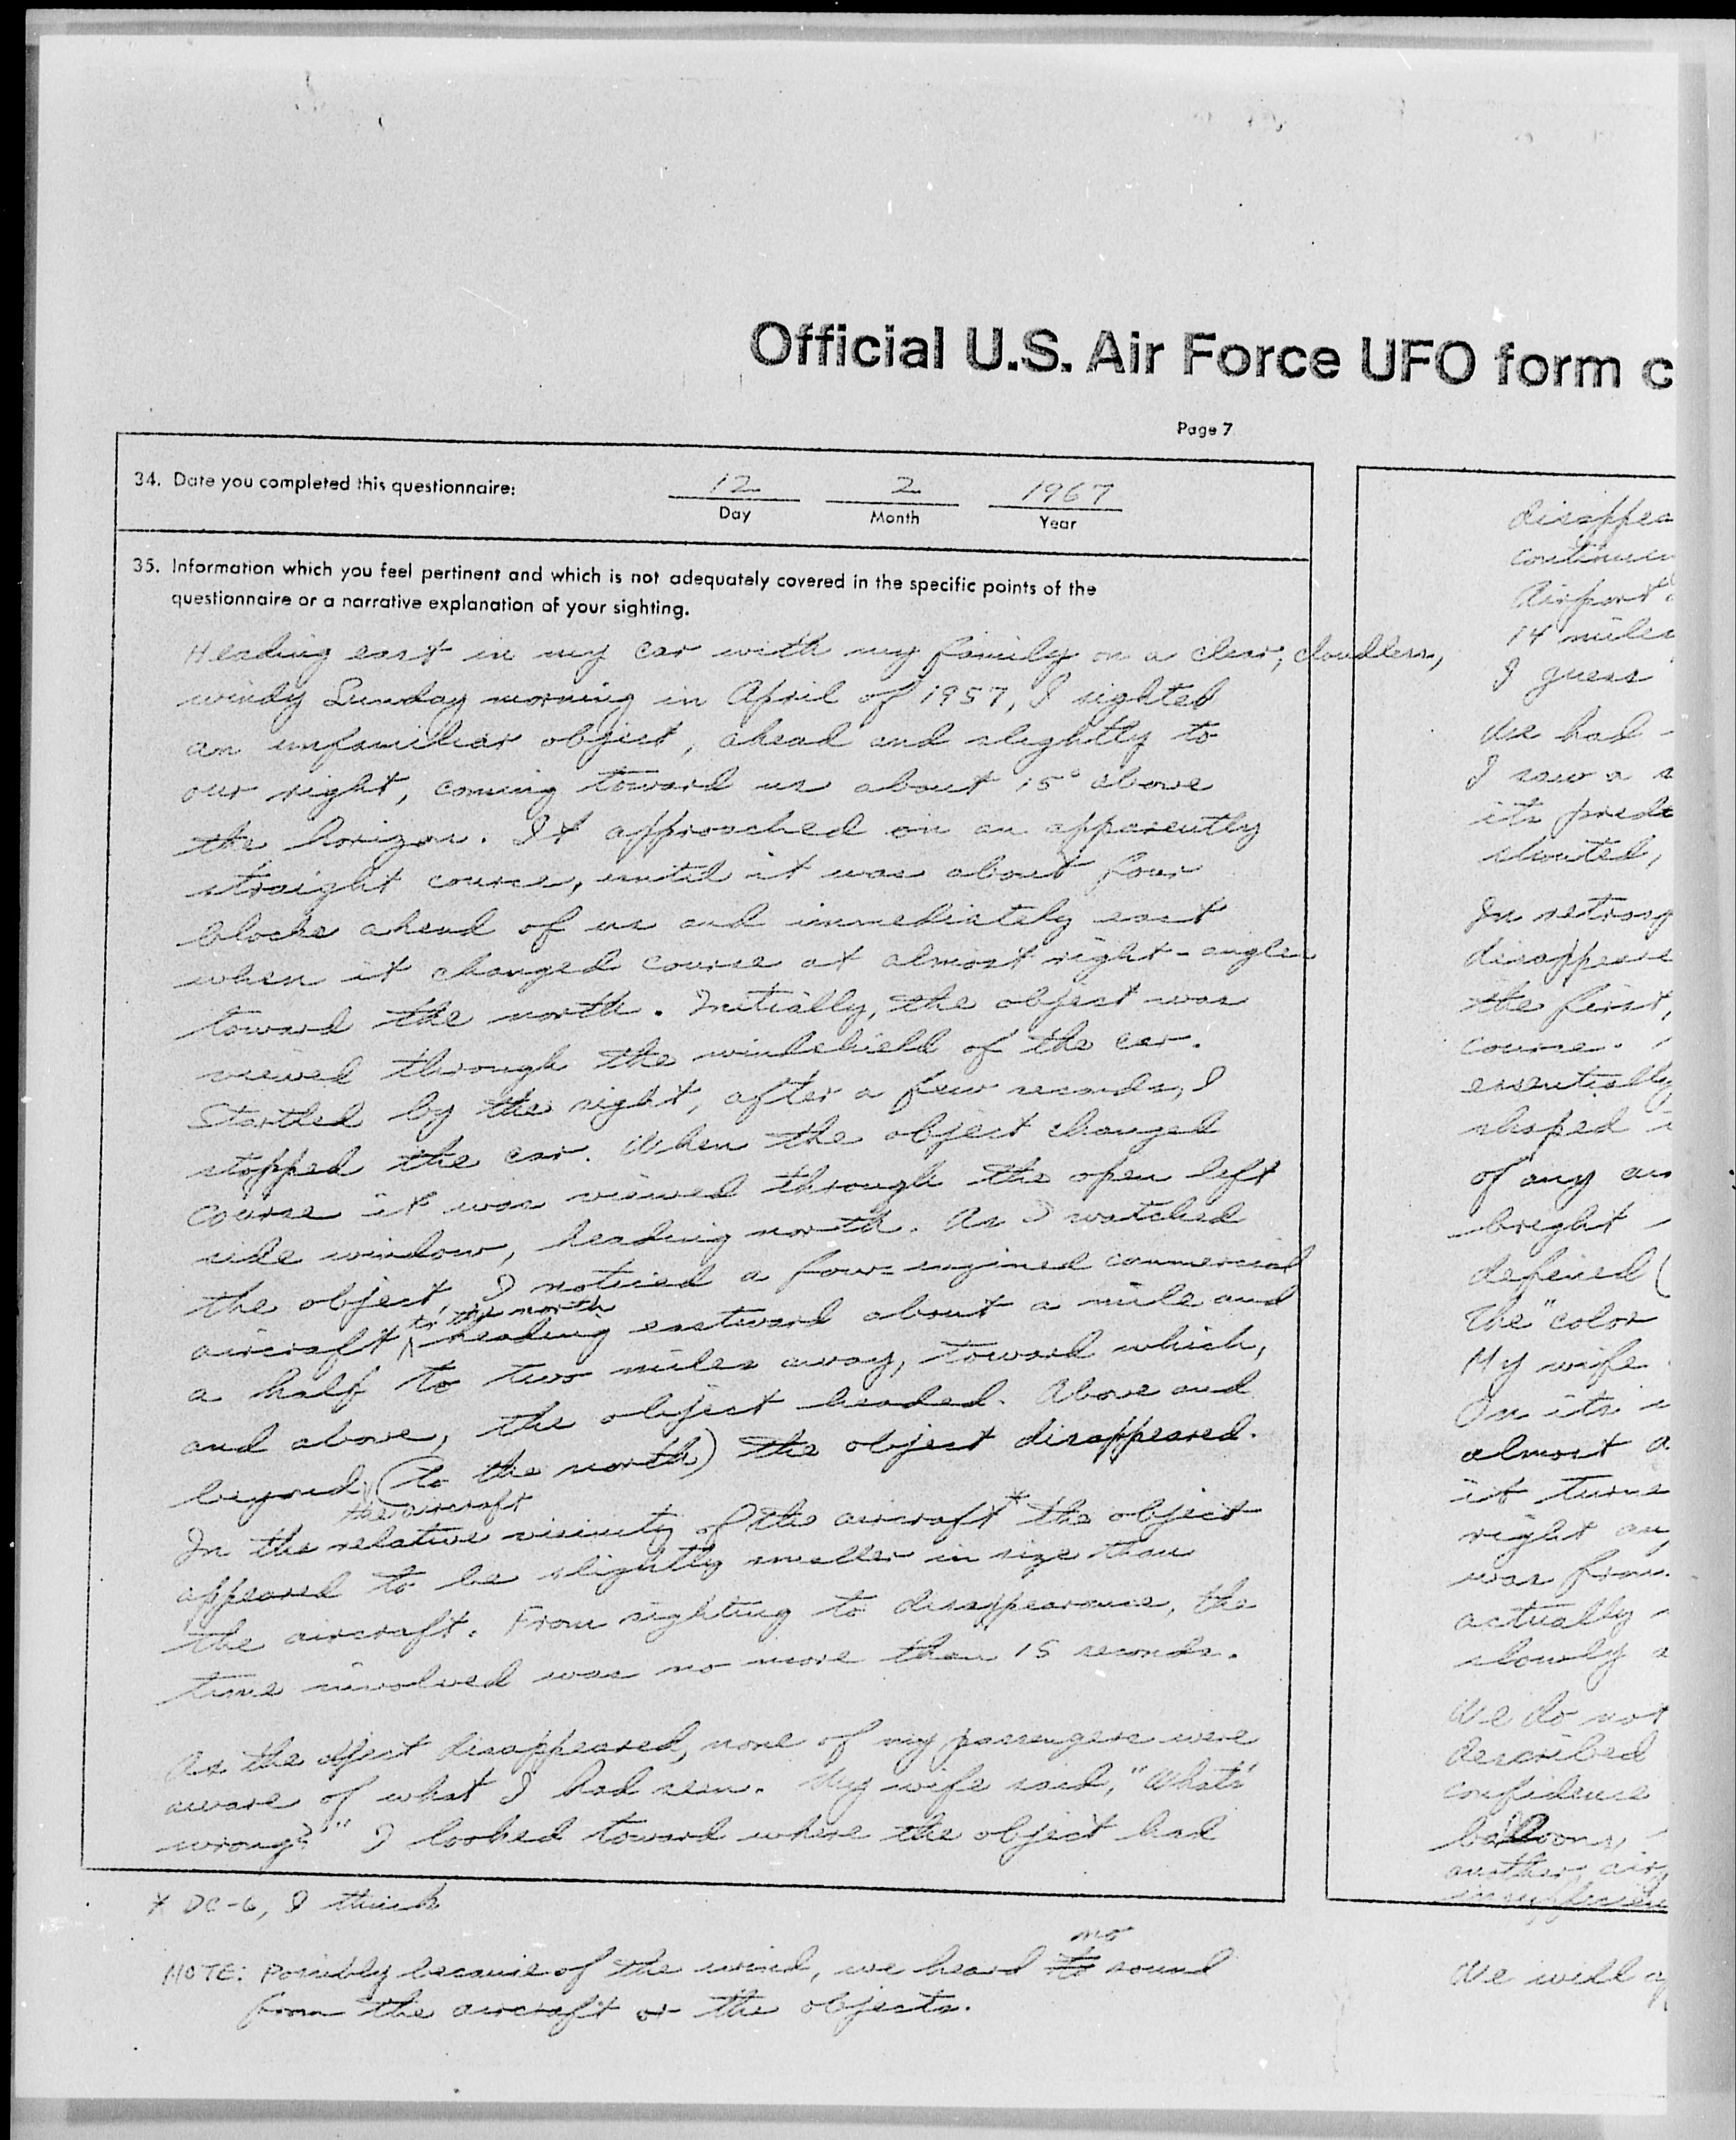 Official U.S. Air Force UFO form c
Page 7
34. Date you completed this questionnaire:
12 2 1967
Day Month Year
35. Information which you feel pertinent and which is not adequately covered in the specific points of the
questionnaire or a narrative explanation of your sighting.
Heading east in my car with my family on a clear, cloudless,
windy Sunday morning in April of 1957, I sighted
an unfamiliar object, ahead and slightly to
our right, coming toward us about 15° above
the horizon. It approached on an apparently
straight course, until it was about four
blocks ahead of us and immediately east
when it changed course at almost right-angles
toward the north. Initially, the object was
viewed through the windshield of the car.
Startled by the sight, after a few seconds, I
stopped the car. When the object changed
course it was viewed through the open left
side window, heading north. As I watched
the object, I noticed a four-engined commercial
to the north
aircraft ^ heading eastward about a mile and
a half to two miles away, toward which,
and above, the object headed. Above and
beyond (to the north) the object disappeared.
the aircraft
In the relative vicinity of the aircraft* the object
appeared to be slightly smaller in size than
the aircraft. From sighting to disappearance, the
time involved was no more than 15 seconds.
As the object disappeared, none of my passengers were
aware of what I had seen. My wife said, "What's
wrong?" I looked toward where the object had
* DC-6, I think
no
NOTE: Possibly because of the wind, we heard sound
from the aircraft or the objects.
disappea
continuen
Airport
14 miles
I guess
We had
I saw a s
its prede
shouted,
In retrosp
disappeare
the first,
course.
essentially
shaped
of any an
bright
defined (
The "color
My wife
On its
almost a
it turne
right an
was from
actually
slowly a
We do not
described
confidence
balloons,
another air
We will a